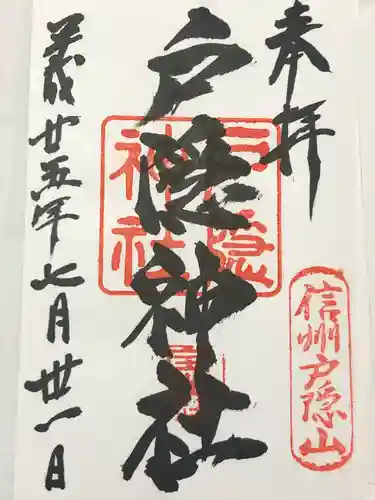 奉拝
信州戸隠山
戸隠神社
戸隠
神社
廿五年七月卅一日